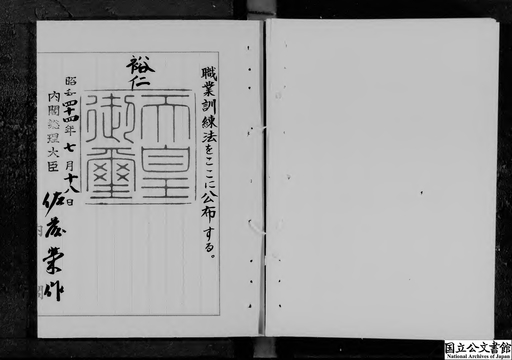 職業訓練法をここに公布する。
裕仁
天皇
御璽
昭和四十四年七月十八日
内閣総理大臣
佐藤榮作
内
閣
国立公文書館
National Archives of Japan